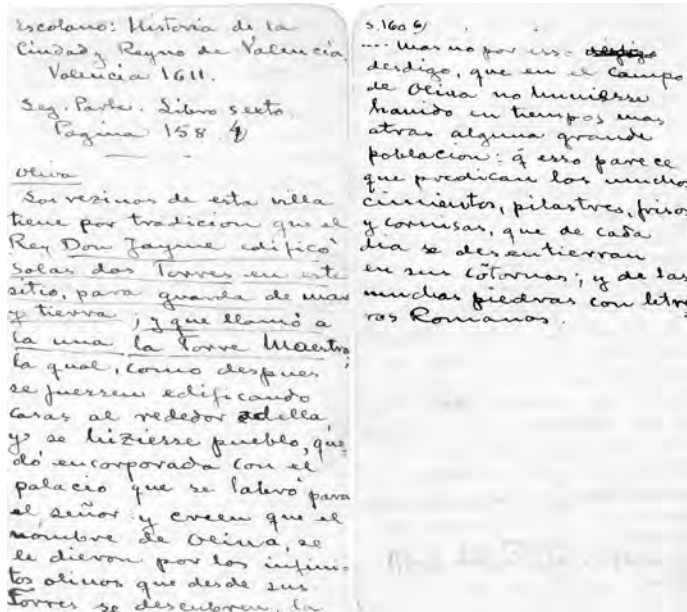 Escolano: Historia de la
Ciudad y Reyno de Valencia
Valencia 1611.
Seg. Parte. Libro sexto.
Pagina 158.
Oliva
Los vezinos de esta villa
tiene por tradicion que el
Rey Don Jayme edificó
solas dos Torres en este
sitio, para guarda de mar
y tierra; y que llamó a
la una la Torre Maestra
la qual, como despues
se fuessen edificando
casas al rededor della
y se hiziesse pueblo, que
dó encorporada con el
palacio que se labró para
el señor: y creen que el
nombre de Oliva, se
le dieron por los infini-
tos olivos que desde sus
Torres se descubren, la
s. 160
.... Mas no por esso
desdigo, que en el Campo
de Oliva no huviesse
havido en tiempos mas
atras alguna grande
poblacion: q̃ esso parece
que predican los muchos
cimientos, pilastres, frisos
y cornisas, que de cada
dia se desentierran
en sus cõtornos; y de las
muchas piedras con letre
ros Romanos.